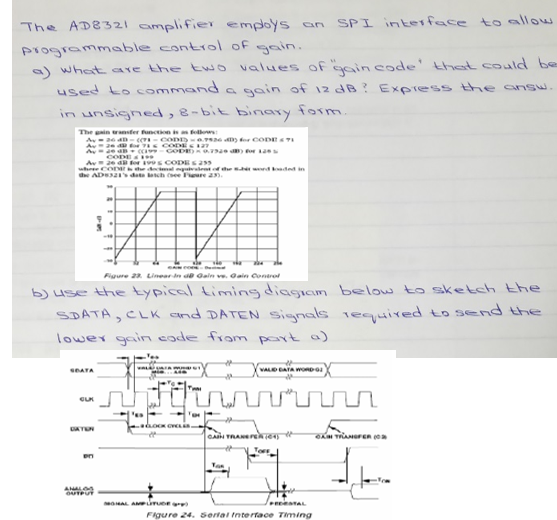 The AD8321 amplifier employs an SPI interface to allow
programmable control of gain.
a) what are the two values of "gain code" that could be
used to command a gain of 12 dB? Express the answ.
in unsigned, 8-bit binary form.
The gain transfer function is as follows:
where CODE is the decimal equivalent of the 8-bit word loaded in
the AD8321's data latch (see Figure 23).
GAIN CODE – Decimal
Figure 23. Linear-in dB Gain vs. Gain Control
b) use the typical timing diagram below to sketch the
SDATA, CLK and DATEN signals required to send the
lower gain code from part a)
SDATA
VALID DATA WORD G1
MSB. . . .LSB
VALID DATA WORD G2
CLK
DATEN
8 CLOCK CYCLES
GAIN TRANSFER (G1)
GAIN TRANSFER (G2)
PD
TOFF
TGS
TON
ANALOG
OUTPUT
SIGNAL AMPLITUDE (p-p)
PEDESTAL
Figure 24. Serial Interface Timing